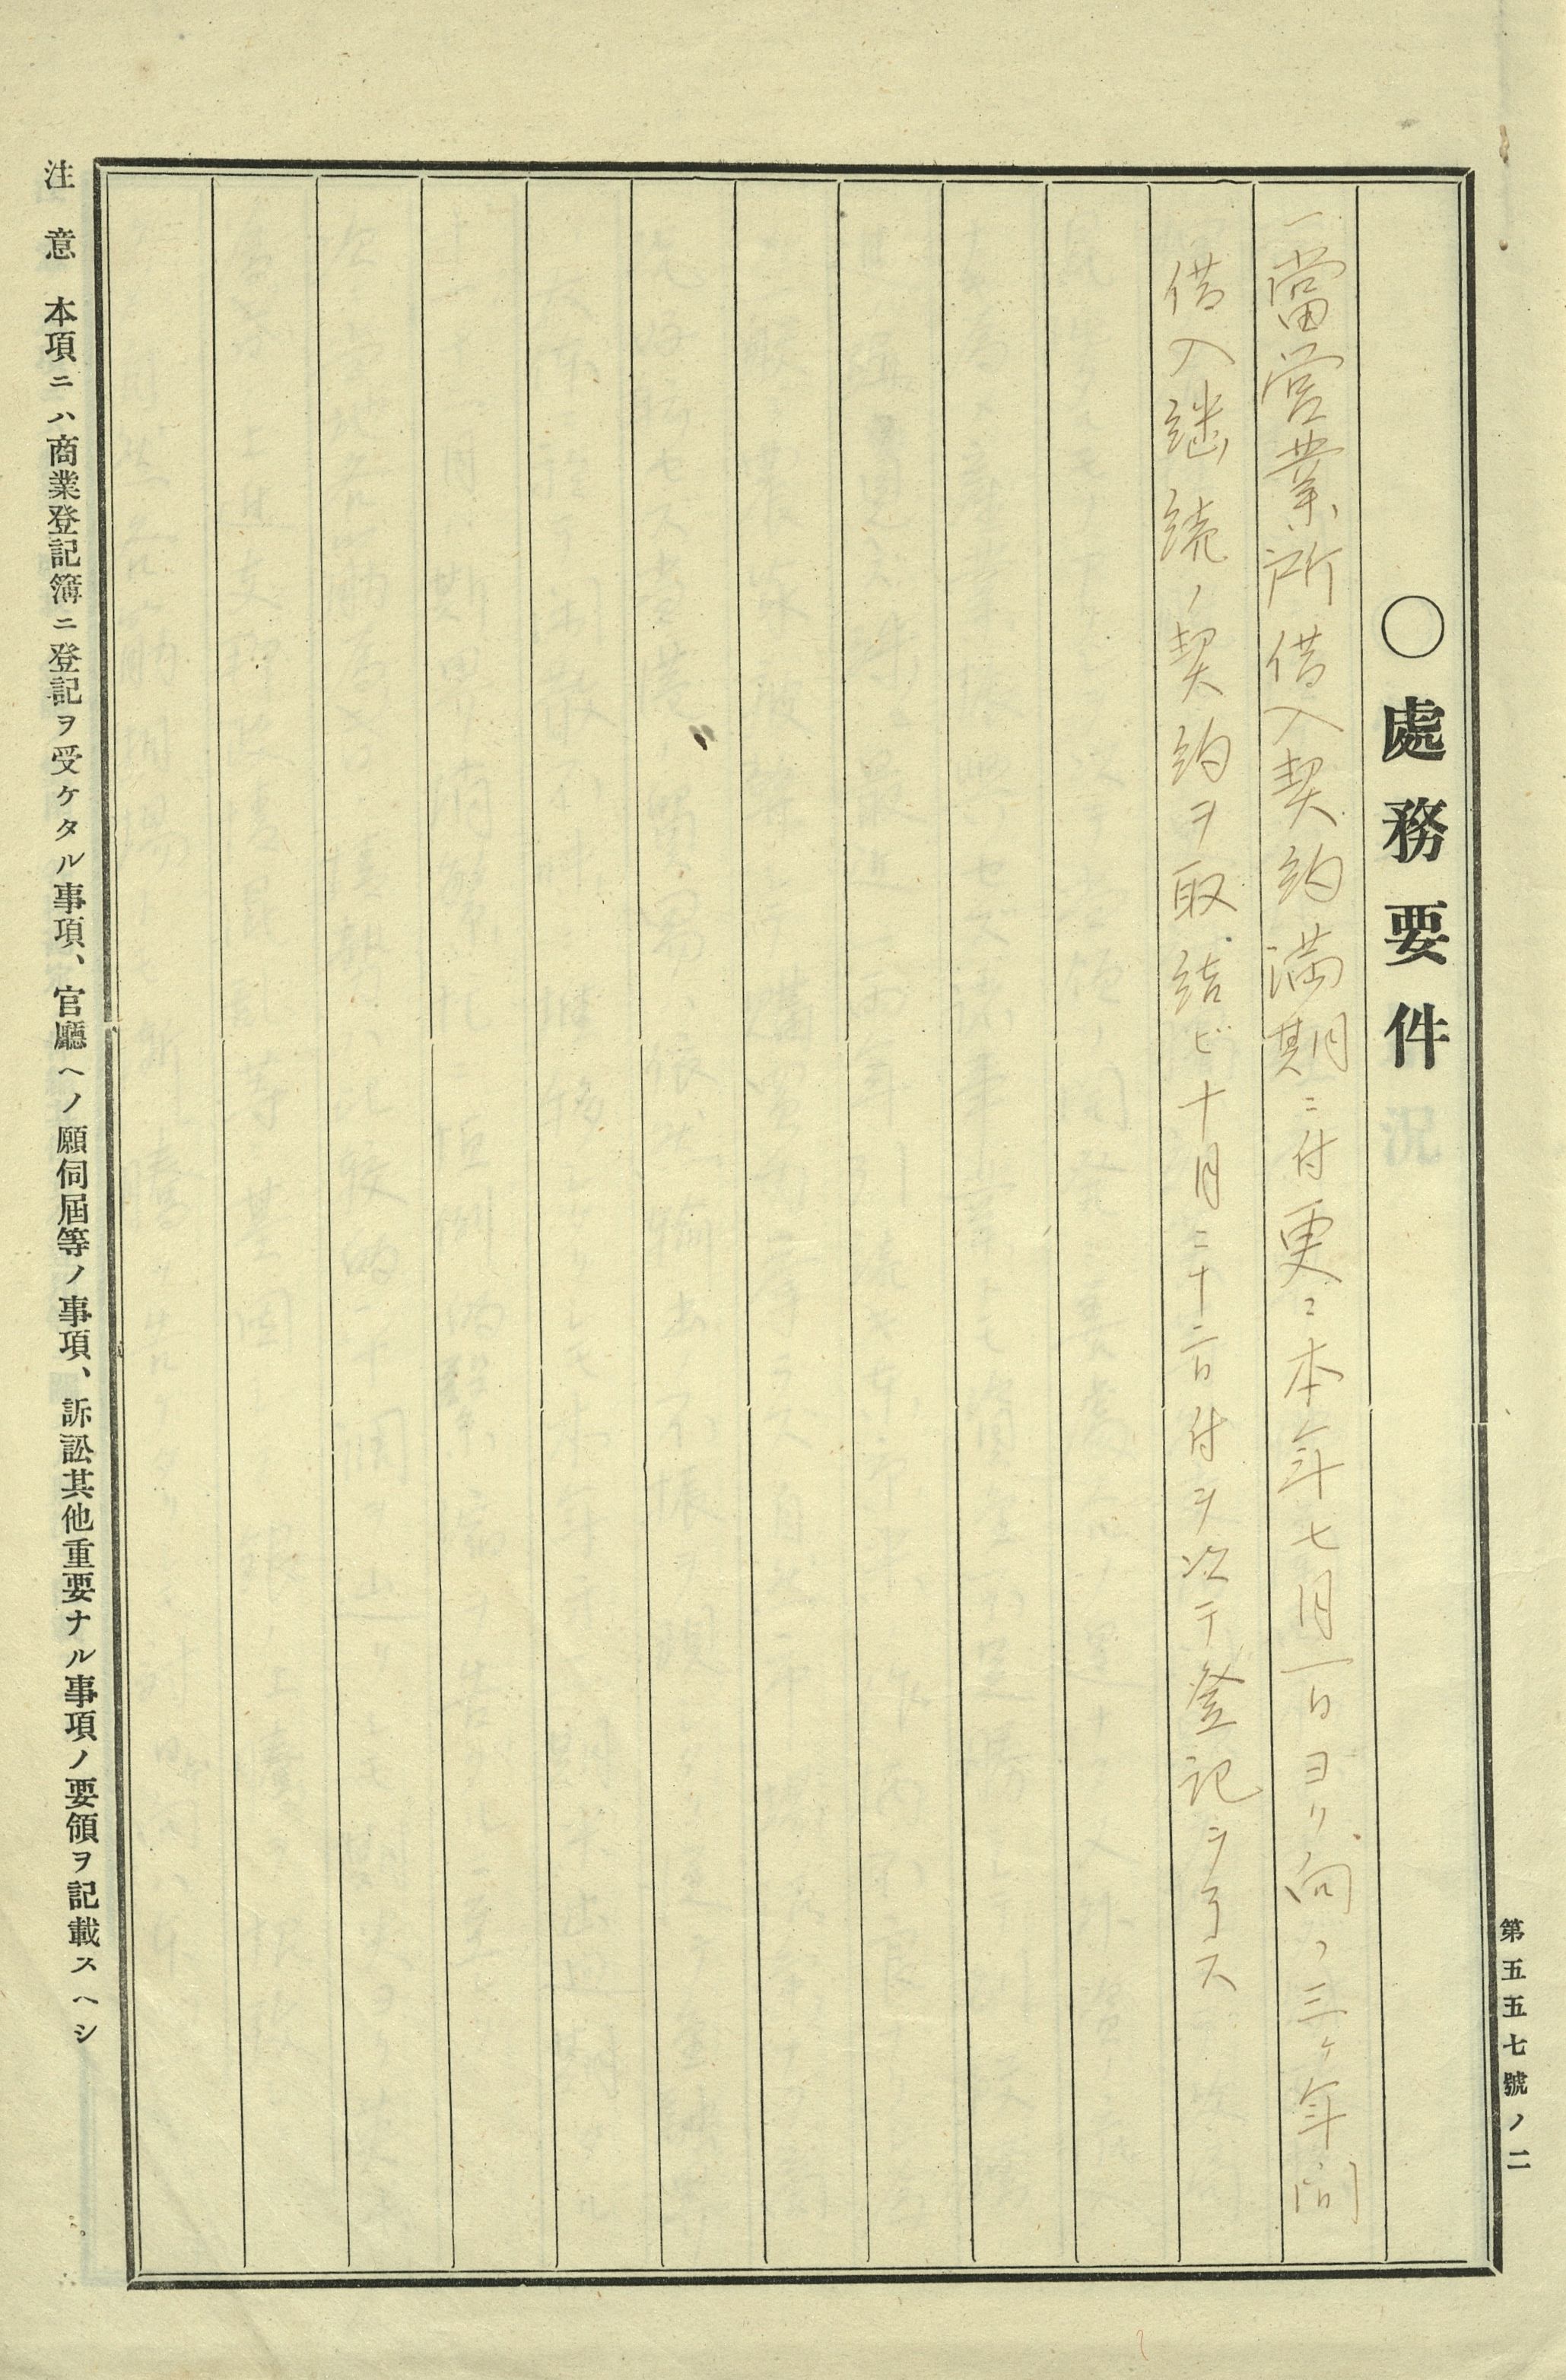 第五五七號ノ二
〇處務要件
一當営業所借入契約満期ニ付更ニ本年七月一日ヨリ向ノ三ヶ年間
借入継続ノ契約ヲ取結ビ十月二十二日付ヲ以テ登記ヲ了ス
注意 本項ニハ商業登記簿ニ登記ヲ受ケタル事項、官廳ヘノ願伺屆等ノ事項、訴訟其他重要ナル事項ノ要領ヲ記載スヘシ